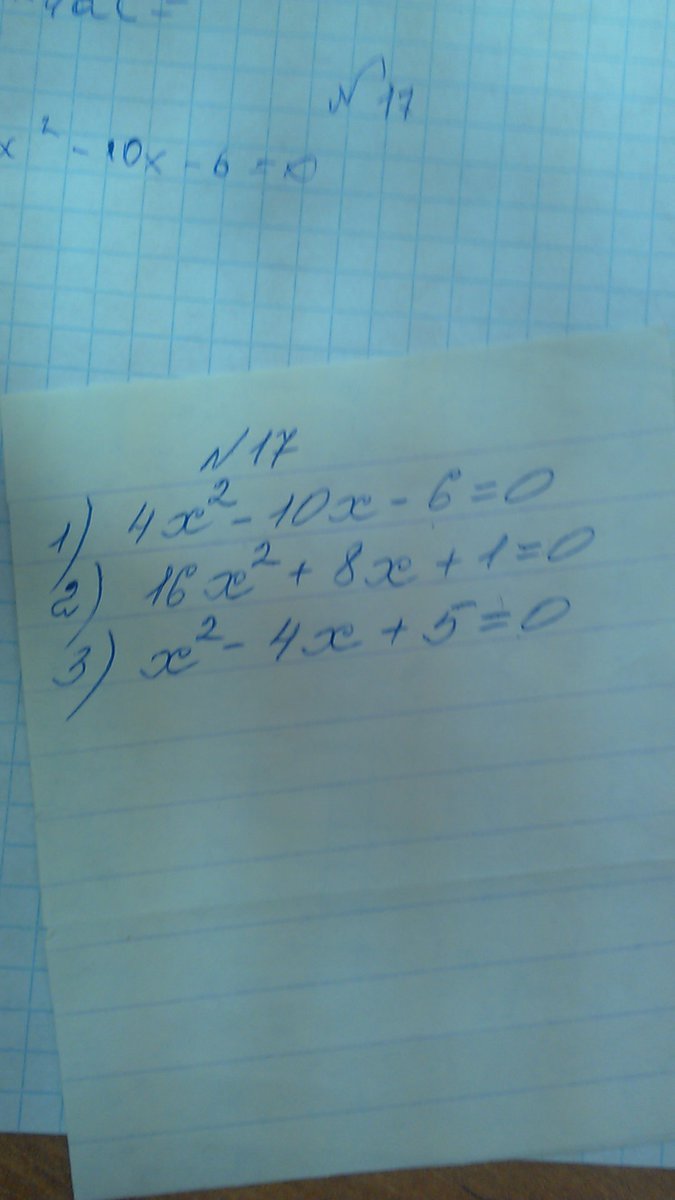 4ac =
№17
x² - 10x - 6 = 0
№17
1) 4x² - 10x - 6 = 0
2) 16x² + 8x + 1 = 0
3) x² - 4x + 5 = 0